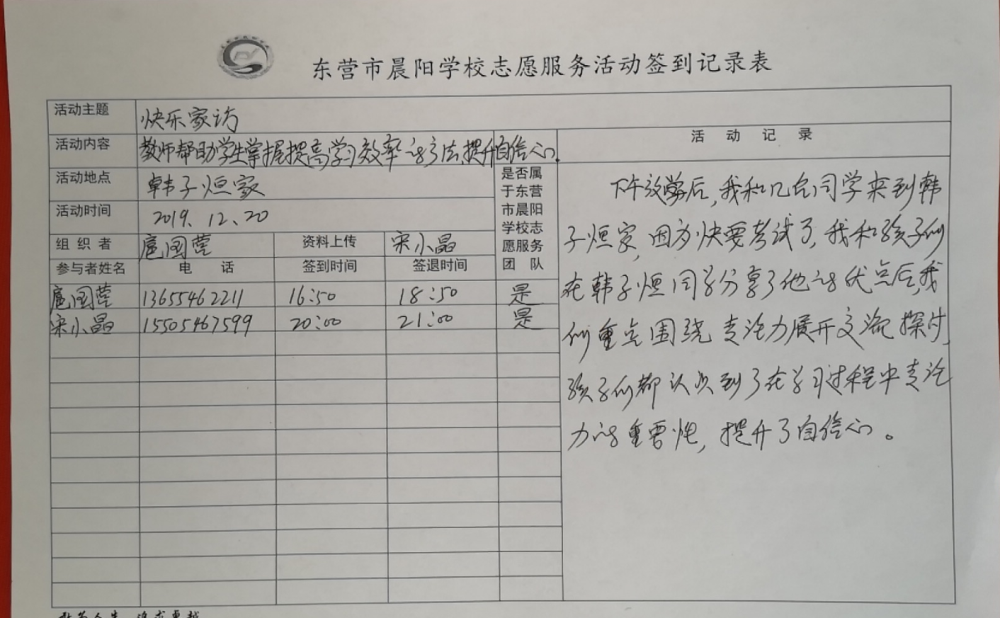 东营市晨阳学校志愿服务活动签到记录表
活动主题 快乐家访
活动内容 教师帮助学生掌握提高学习效率的方法提升自信心。
活动地点 韩子烜家
活动时间 2019.12.20
组织者 扈国莹 资料上传 宋小晶
参与者姓名 电话 签到时间 签退时间
是否属
于东营
市晨阳
学校志
愿服务
团队
扈国莹 13655462211 16:50 18:50 是
宋小晶 15505467599 20:00 21:00 是
活动记录
下午放学后,我和几名同学来到韩
子烜家,因为快要考试了,我和孩子们
在韩子烜同学分享了他的优点后,我
们重点围绕专注力展开交流探讨,
孩子们都认识到了在学习过程中专注
力的重要性,提升了自信心。